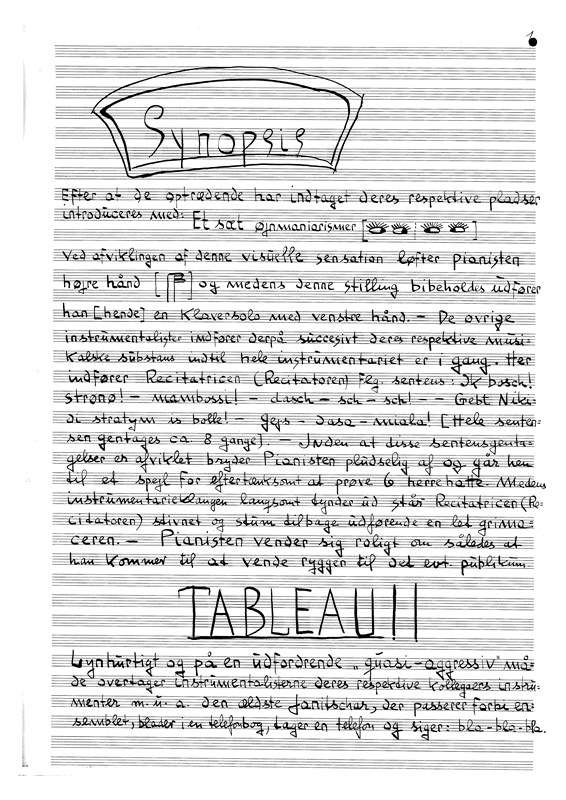 1
Synopsis
Efter at de optrædende har indtaget deres respektive pladser
introduceres med: Et sæt øjnmaniarismer [ ]
Ved afviklingen af denne visuelle sensation løfter pianisten
højre hånd [ ] og medens denne stilling bibeholdes udfører
han [hende] en klaversolo med venstre hånd. – De øvrige
instrumentalister indfører derpå succesivt deres respektive musi-
kalske substans indtil hele instrumentariet er i gang. Her
indfører Recitatricen (Recitatoren) flg. sentens: Ik bosch!
strønø! – mambossi! – dasch – sch – sch! – – Gebt Niki-
di stratym is bolle! – gejs – dasa – miala! [Hele senten-
sen gentages ca. 8 gange]. – Inden at disse sentensgenta-
gelser er afviklet bryder Pianisten pludselig af og går hen
til et spejl for eftertænksomt at prøve 6 herrehatte. Medens
instrumentarieklangen langsomt tynder ud står Recitatricen (Re-
citatoren) stivnet og stum tilbage udførende en let grima-
ceren. – Pianisten vender sig roligt om således at
han kommer til at vende ryggen til det evt. publikum.
TABLEAU!!
Lynhurtigt og på en udfordrende „quasi-aggressiv" må-
de overtager instrumentalisterne deres respektive kollegaers instru-
menter m. u. a. den ældste janitschar, der passerer forbi en-
semblet, blader i en telefonbog, tager en telefon og siger: bla-bla-bla.